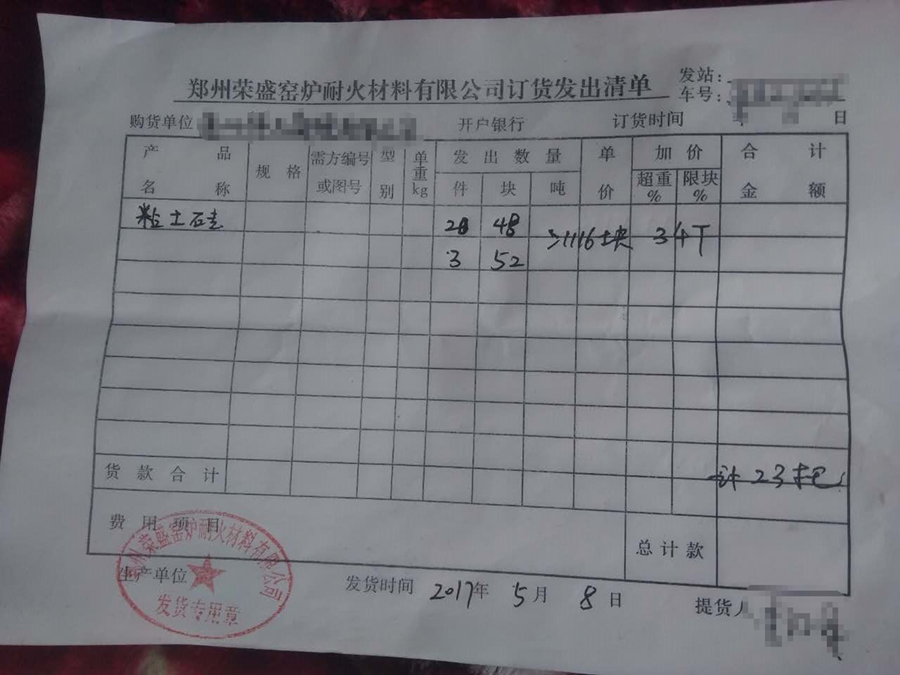 郑州荣盛窑炉耐火材料有限公司订货发出清单
发站:
车号:
购货单位 开户银行 订货时间 年 月 日
产品名称 规格 需方编号或图号 型别 单重kg 发出数量 件 块 吨 单价 加价 超重% 限块% 合计金额
粘土硅 20 48 1116块 34T
3 52
货款合计 计23托
费用项目 总计款
生产单位 发货时间 2017年5月8日 提货人
郑州荣盛窑炉耐火材料有限公司
发货专用章